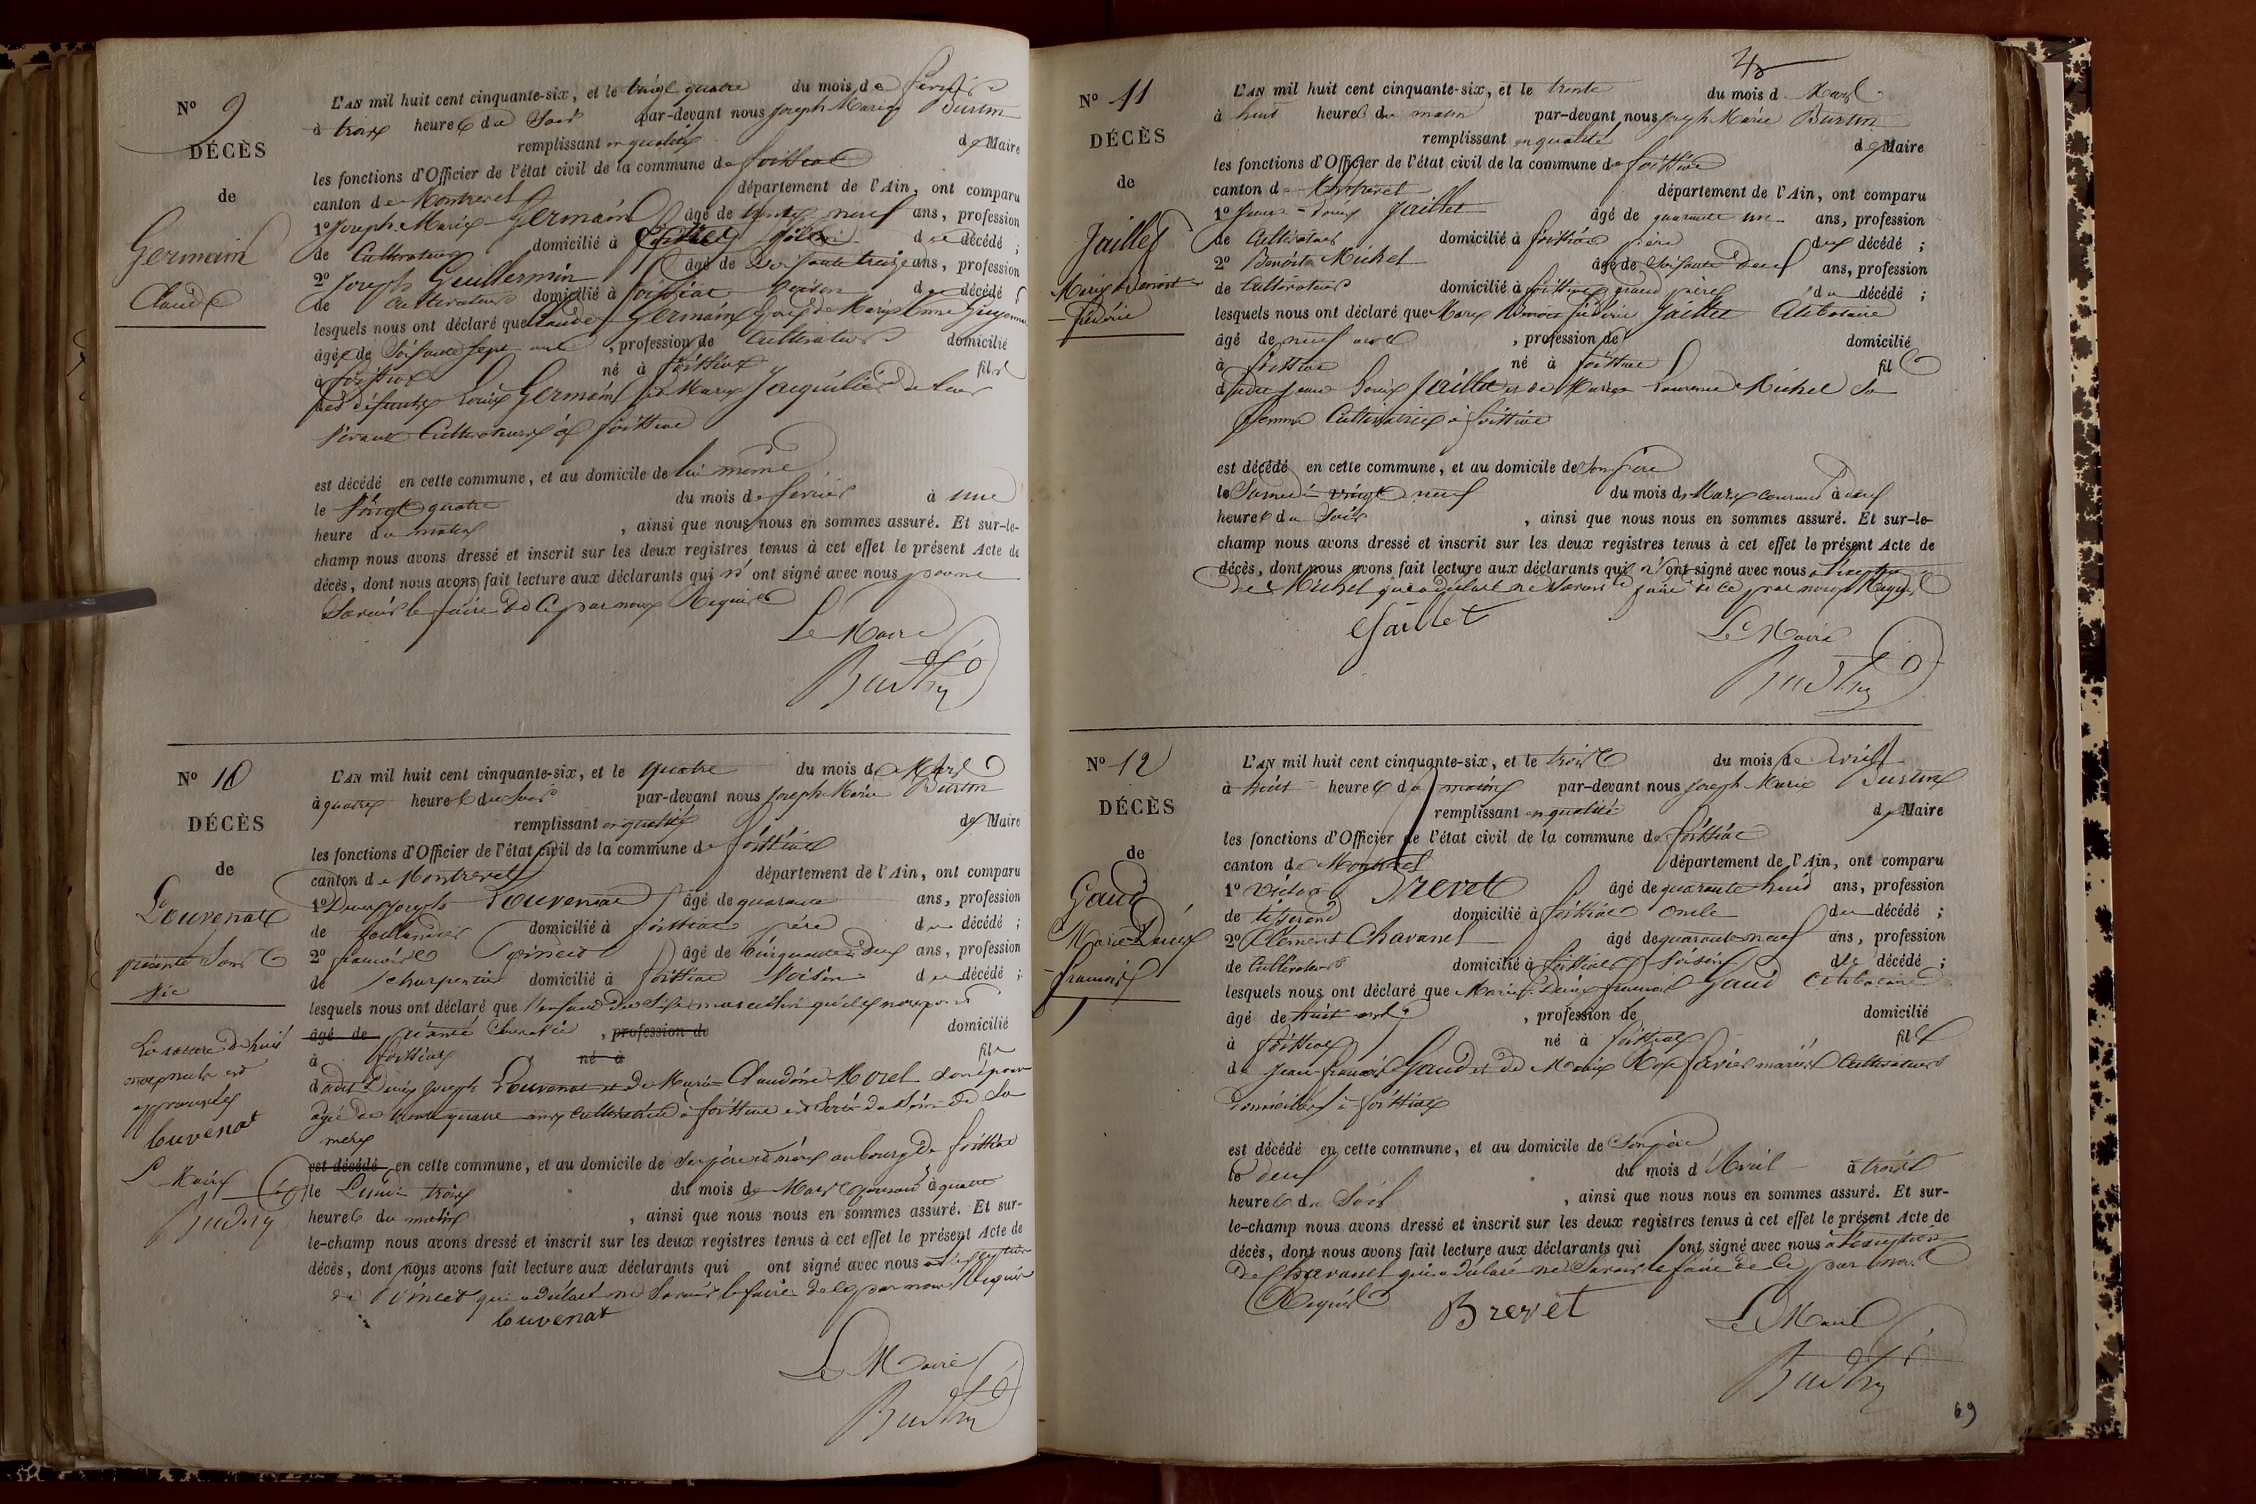 N° 9
DÉCÈS
de
Germain
Claude
L'AN mil huit cent cinquante-six, et le vingt quatre du mois de février
à trois heures du soir par-devant nous Joseph Marie Burtin
remplissant en qualité de Maire
les fonctions d'Officier de l'état civil de la commune de foissiat
canton de Montrevel département de l'Ain, ont comparu
1° Joseph Marie Germain âgé de trente neuf ans, profession
de Cultivateur domicilié à foissiat du décédé ;
2° Joseph Guillermin âgé de soixante treize ans, profession
de Cultivateur domicilié à foissiat voisin du décédé ;
lesquels nous ont déclaré que Claude Germain de Marie
âgé de soixante sept ans, profession de Cultivateur domicilié
à foissiat né à foissiat fils
défunts Louis Germain et Marie de leur
vivant Cultivateurs à foissiat
est décédé en cette commune, et au domicile de lui même
le vingt quatre du mois de février à une
heure du matin, ainsi que nous nous en sommes assuré. Et sur-le-
champ nous avons dressé et inscrit sur les deux registres tenus à cet effet le présent Acte de
décès, dont nous avons fait lecture aux déclarants qui n'ont signé avec nous pour ne
savoir le faire de ce par nous Requis
Le Maire
N° 10
DÉCÈS
de
Louvenat
présenté sans
vie
Louvenat
Le Maire
L'AN mil huit cent cinquante-six, et le quatre du mois de Mars
à quatre heures du soir par-devant nous Joseph Marie Burtin
remplissant en qualité de Maire
les fonctions d'Officier de l'état civil de la commune de foissiat
canton de Montrevel département de l'Ain, ont comparu
1° Denis Joseph Louvenat âgé de quarante ans, profession
de domicilié à foissiat père du décédé ;
2° françois âgé de cinquante deux ans, profession
de charpentier domicilié à foissiat voisin du décédé ;
lesquels nous ont déclaré que l'enfant du sexe masculin qu'ils nous ont
âgé de présenté sans vie, profession de domicilié
à foissiat né à fils
dudit Denis Joseph Louvenat et de Marie Claudine Morel son épouse
âgée de trente quatre ans cultivatrice à foissiat est sorti du sein de sa
mère
est décédé en cette commune, et au domicile de ses père et mère au bourg de foissiat
le Lundi trois du mois de Mars courant à quatre
heures du matin, ainsi que nous nous en sommes assuré. Et sur-
le-champ nous avons dressé et inscrit sur les deux registres tenus à cet effet le présent Acte de
décès, dont nous avons fait lecture aux déclarants qui ont signé avec nous à l'exception
de qui a déclaré ne savoir le faire de ce par nous Requis
Louvenat
Le Maire
N° 11
DÉCÈS
de
Jaillet
Marie Benoit
L'AN mil huit cent cinquante-six, et le trente du mois de Mars
à huit heures du matin par-devant nous Joseph Marie Burtin
remplissant en qualité de Maire
les fonctions d'Officier de l'état civil de la commune de foissiat
canton de Montrevel département de l'Ain, ont comparu
1° Jean-Louis Jaillet âgé de quarante un ans, profession
de Cultivateur domicilié à foissiat père du décédé ;
2° Benoit Michel âgé de soixante deux ans, profession
de Cultivateur domicilié à foissiat grand père du décédé ;
lesquels nous ont déclaré que Marie Benoit Jaillet Célibataire
âgé de neuf ans, profession de domicilié
à foissiat né à foissiat fils
dudit Jean Louis Jaillet et de Marie Laurence Michel sa
femme Cultivatrice à foissiat
est décédé en cette commune, et au domicile de son père
le Samedi vingt neuf du mois de Mars courant à neuf
heures du soir, ainsi que nous nous en sommes assuré. Et sur-le-
champ nous avons dressé et inscrit sur les deux registres tenus à cet effet le présent Acte de
décès, dont nous avons fait lecture aux déclarants qui ont signé avec nous à l'exception
de Michel qui a déclaré ne savoir le faire de ce par nous Requis
Jaillet
Le Maire
N° 12
DÉCÈS
de
Gaud
Marie Denis
françois
L'AN mil huit cent cinquante-six, et le trois du mois de Avril
à huit heures du matin par-devant nous Joseph Marie Burtin
remplissant en qualité de Maire
les fonctions d'Officier de l'état civil de la commune de foissiat
canton de Montrevel département de l'Ain, ont comparu
1° Victor Brevet âgé de quarante huit ans, profession
de tisserand domicilié à foissiat oncle du décédé ;
2° Clément Chavanel âgé de quarante neuf ans, profession
de Cultivateur domicilié à foissiat voisin du décédé ;
lesquels nous ont déclaré que Marie Denis françois Gaud Célibataire
âgé de huit ans, profession de domicilié
à foissiat né à foissiat fils
de Jean-françois Gaud et de Marie Rose favier mariés Cultivateurs
domiciliés à foissiat
est décédé en cette commune, et au domicile de son père
le deux du mois d'Avril à trois
heures du soir, ainsi que nous nous en sommes assuré. Et sur-
le-champ nous avons dressé et inscrit sur les deux registres tenus à cet effet le présent Acte de
décès, dont nous avons fait lecture aux déclarants qui ont signé avec nous à l'exception
de Chavanel qui a déclaré ne savoir le faire de ce par nous
Requis
Brevet
Le Maire
69